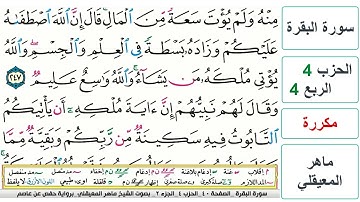 مِنْهُ وَلَمْ يُؤْتَ سَعَةً مِّنَ ٱلْمَالِ قَالَ إِنَّ ٱللَّهَ ٱصْطَفَىٰهُ
عَلَيْكُمْ وَزَادَهُۥ بَسْطَةً فِى ٱلْعِلْمِ وَٱلْجِسْمِ وَٱللَّهُ
يُؤْتِى مُلْكَهُۥ مَن يَشَآءُ وَٱللَّهُ وَٰسِعٌ عَلِيمٌ ٢٤٧
وَقَالَ لَهُمْ نَبِيُّهُمْ إِنَّ ءَايَةَ مُلْكِهِۦٓ أَن يَأْتِيَكُمُ
ٱلتَّابُوتُ فِيهِ سَكِينَةٌ مِّن رَّبِّكُمْ وَبَقِيَّةٌ مِّمَّا
سورة البقرة
الحزب 4
الربع 4
مكررة
ماهر
المعيقلي
سورة البقرة . الصفحة ٤٠ . الحزب ٤ . الجزء ٢ . بصوت الشيخ ماهر المعيقلي . برواية حفص عن عاصم